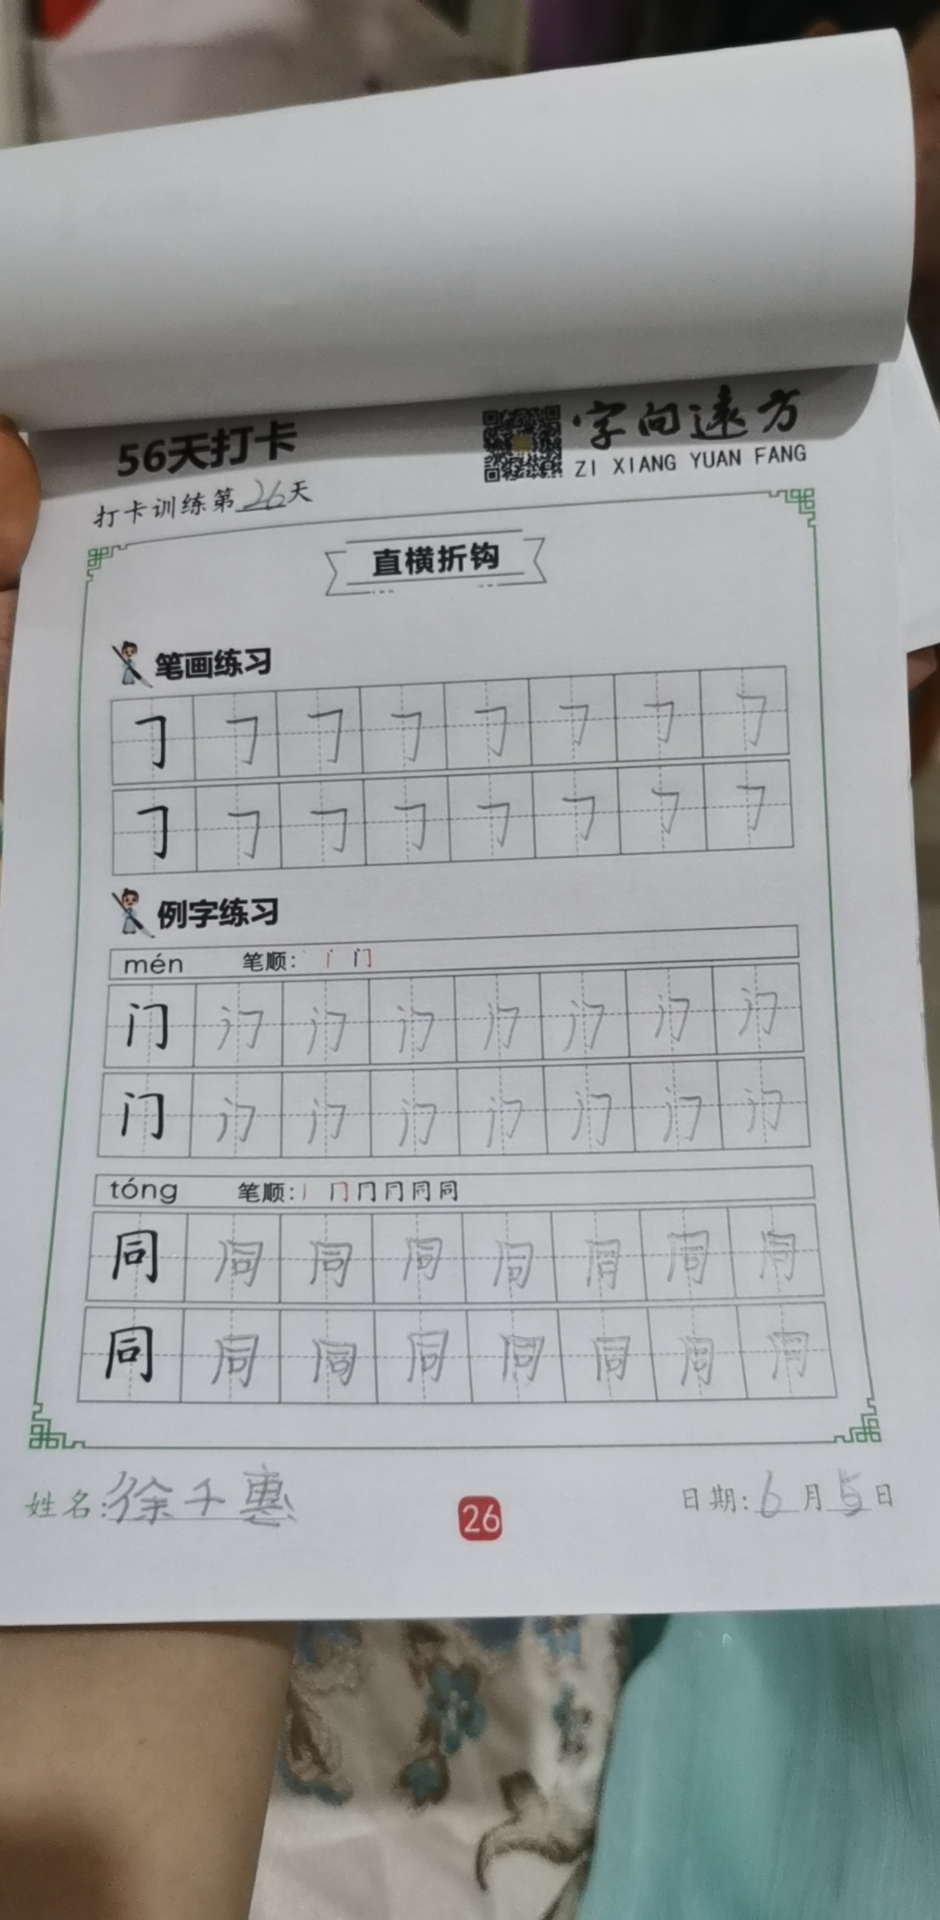 56天打卡
字向远方
ZI XIANG YUAN FANG
打卡训练第26天
直横折钩
笔画练习
㇆ ㇆ ㇆ ㇆ ㇆ ㇆ ㇆ ㇆
㇆ ㇆ ㇆ ㇆ ㇆ ㇆ ㇆ ㇆
例字练习
mén 笔顺: 丶 门
门 门 门 门 门 门 门 门
门 门 门 门 门 门 门 门
tóng 笔顺: 丨 冂 冂 同 同 同
同 同 同 同 同 同 同 同
同 同 同 同 同 同 同 同
姓名:徐千惠
26
日期:6月5日